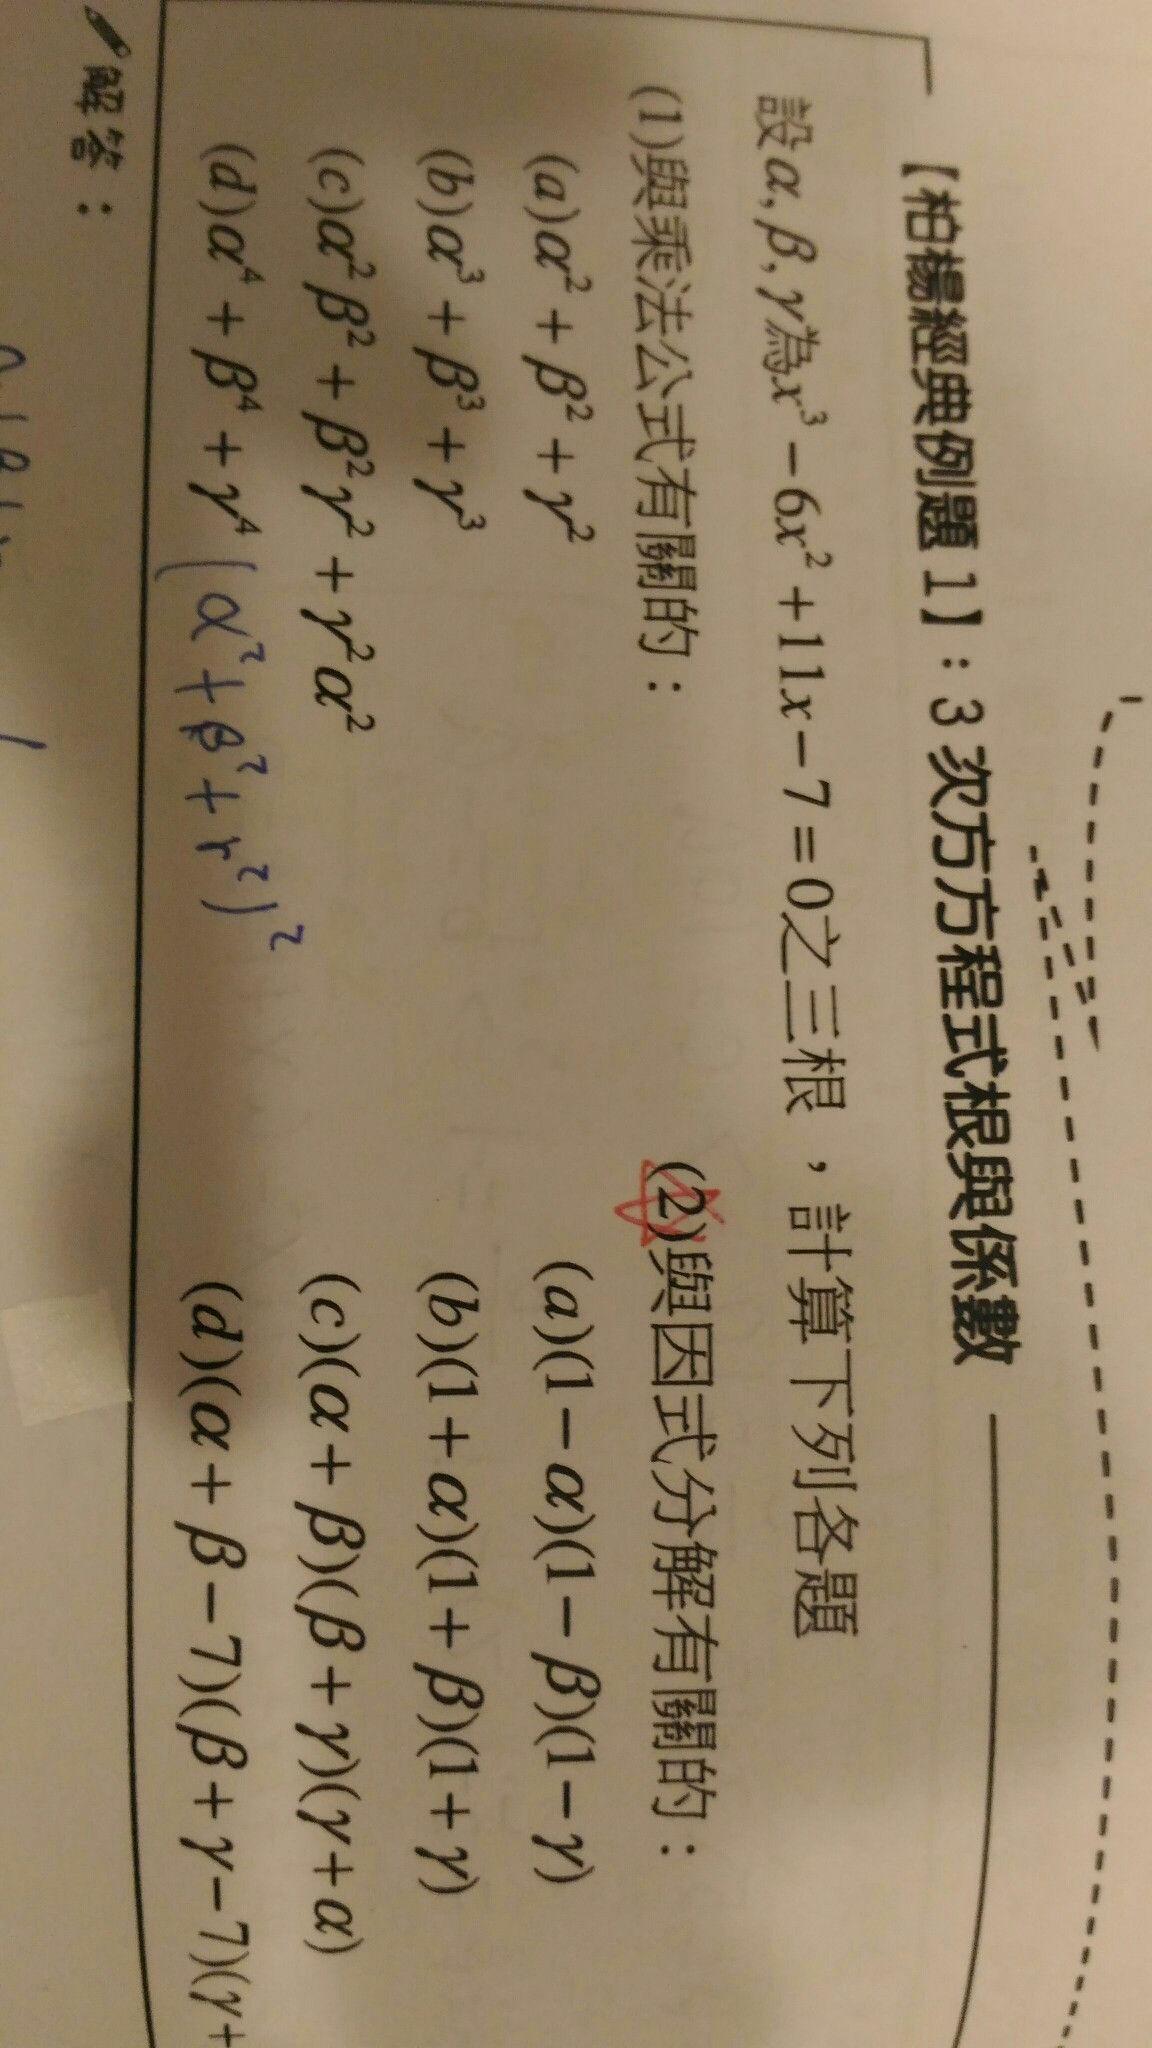 【柏楊經典例題 1】:3 次方方程式根與係數
設α, β, γ為x³−6x²+11x−7=0之三根，計算下列各題
(1)與乘法公式有關的：
(a)α²+β²+γ²
(b)α³+β³+γ³
(c)α²β²+β²γ²+γ²α²
(d)α⁴+β⁴+γ⁴ (α²+β²+r²)²
(2)與因式分解有關的：
(a)(1−α)(1−β)(1−γ)
(b)(1+α)(1+β)(1+γ)
(c)(α+β)(β+γ)(γ+α)
(d)(α+β−7)(β+γ−7)(γ+
解答：